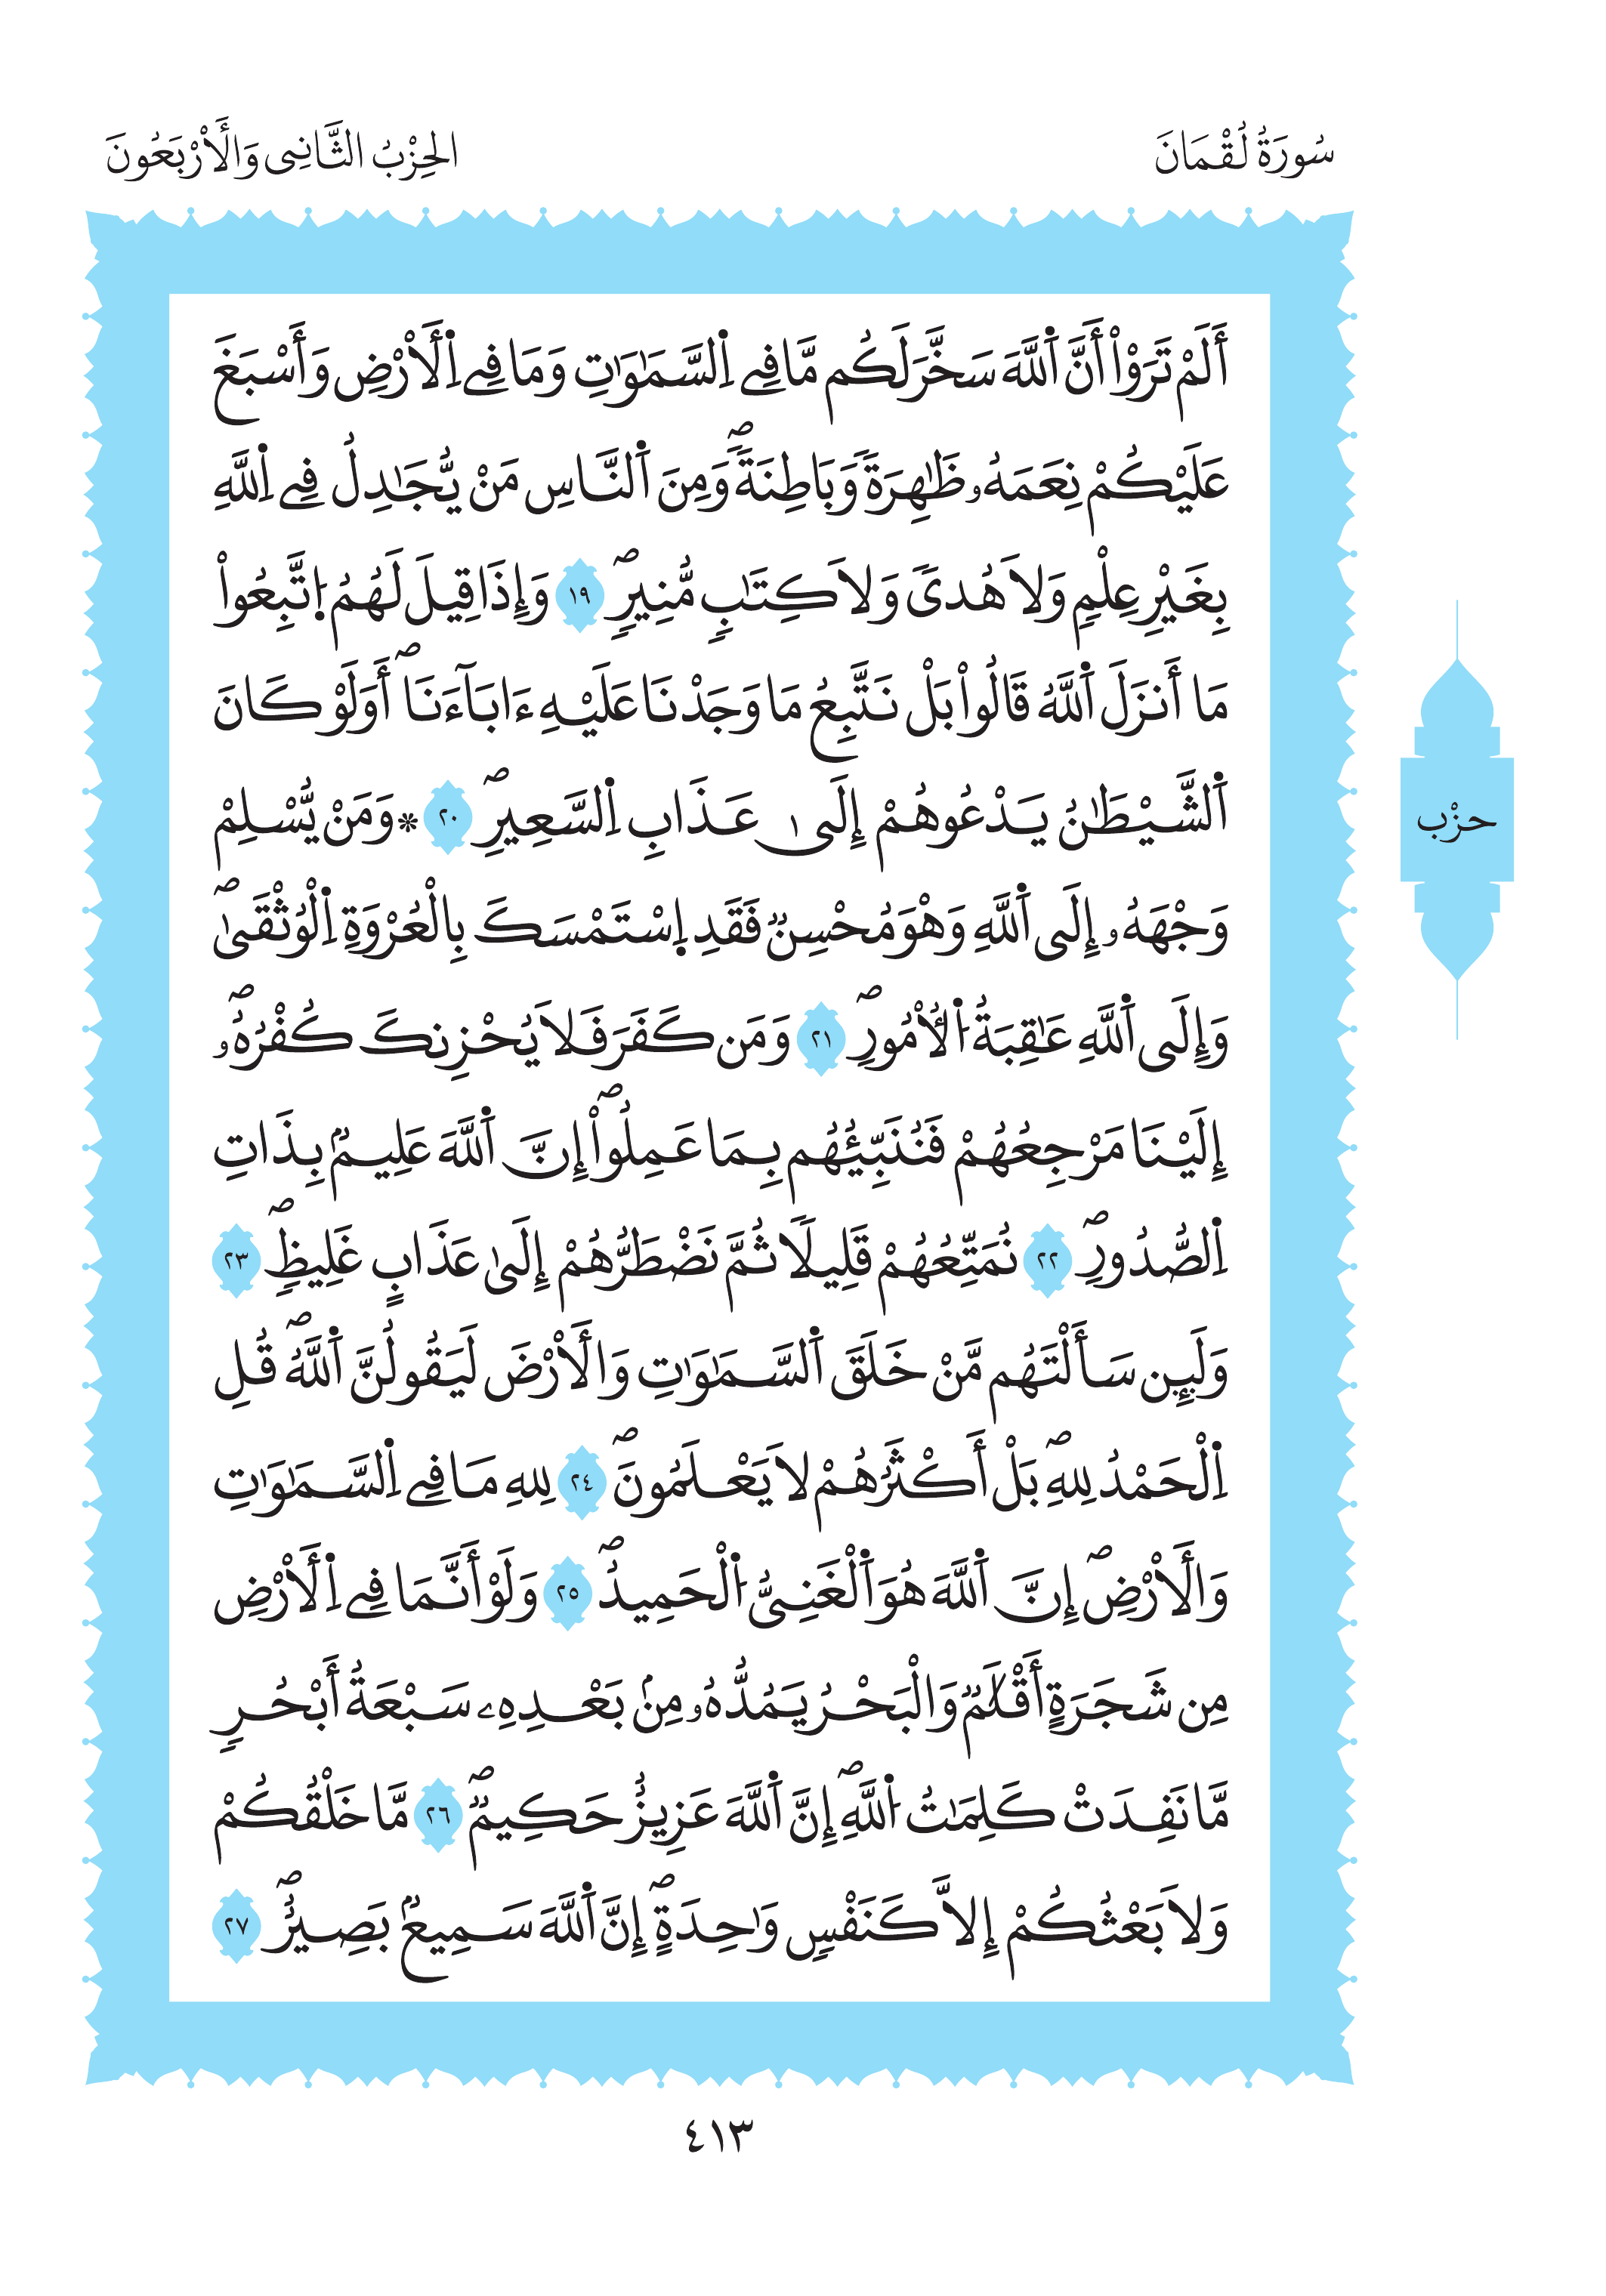 سُورَةُ لُقْمَانَ
الحِزْبُ الثَّانِي وَالْأَرْبَعُونَ
أَلَمْ تَرَوْاْ أَنَّ اَ۬للَّهَ سَخَّرَ لَكُم مَّا فِے اِ۬لسَّمَٰوَٰتِ وَمَا فِے اِ۬لَارْضِ وَأَسْبَغَ
عَلَيْكُمْ نِعَمَهُۥ ظَٰهِرَةٗ وَبَاطِنَةٗۖ وَمِنَ اَ۬لنَّاسِ مَنْ يُّجَٰدِلُ فِے اِ۬للَّهِ
بِغَيْرِ عِلْمٖ وَلَا هُدىٗ وَلَا كِتَٰبٖ مُّنِيرٖۖ ١٩ وَإِذَا قِيلَ لَهُمُ اُ۪تَّبِعُواْ
مَا أَنزَلَ اَ۬للَّهُ قَالُواْ بَلْ نَتَّبِعُ مَا وَجَدْنَا عَلَيْهِ ءَابَآءَنَاۖ أَوَلَوْ كَانَ
اَ۬لشَّيْطَٰنُ يَدْعُوهُمْ إِلَىٰ عَذَابِ اِ۬لسَّعِيرِۖ ٢٠ * وَمَنْ يُّسْلِمْ
وَجْهَهُۥ إِلَى اَ۬للَّهِ وَهْوَ مُحْسِنٞ فَقَدِ اِ۪سْتَمْسَكَ بِالْعُرْوَةِ اِ۬لْوُثْقَىٰۖ
وَإِلَى اَ۬للَّهِ عَٰقِبَةُ اُ۬لُامُورِۖ ٢١ وَمَن كَفَرَ فَلَا يُحْزِنكَ كُفْرُهُۥۖ
إِلَيْنَا مَرْجِعُهُمْ فَنُنَبِّئُهُم بِمَا عَمِلُواْۖ إِنَّ اَ۬للَّهَ عَلِيمُۢ بِذَاتِ
اِ۬لصُّدُورِۖ ٢٢ نُمَتِّعُهُمْ قَلِيلاٗ ثُمَّ نَضْطَرُّهُمْ إِلَىٰ عَذَابٍ غَلِيظٖۖ ٢٣
وَلَئِن سَأَلْتَهُم مَّنْ خَلَقَ اَ۬لسَّمَٰوَٰتِ وَالَارْضَ لَيَقُولُنَّ اَ۬للَّهُۖ قُلِ
اِ۬لْحَمْدُ لِلهِۖ بَلْ أَكْثَرُهُمْ لَا يَعْلَمُونَۖ ٢٤ لِلهِ مَا فِے اِ۬لسَّمَٰوَٰتِ
وَالَارْضِۖ إِنَّ اَ۬للَّهَ هُوَ اَ۬لْغَنِيُّ اُ۬لْحَمِيدُۖ ٢٥ وَلَوْ أَنَّمَا فِے اِ۬لَارْضِ
مِن شَجَرَةٍ أَقْلَٰمٞ وَالْبَحْرُ يَمُدُّهُۥ مِنۢ بَعْدِهِۦ سَبْعَةُ أَبْحُرٖ
مَّا نَفِدَتْ كَلِمَٰتُ اُ۬للَّهِۖ إِنَّ اَ۬للَّهَ عَزِيزٌ حَكِيمٞۖ ٢٦ مَّا خَلْقُكُمْ
وَلَا بَعْثُكُمْ إِلَّا كَنَفْسٖ وَٰحِدَةٍۖ إِنَّ اَ۬للَّهَ سَمِيعُۢ بَصِيرٌۖ ٢٧
حزْب
٤١٣